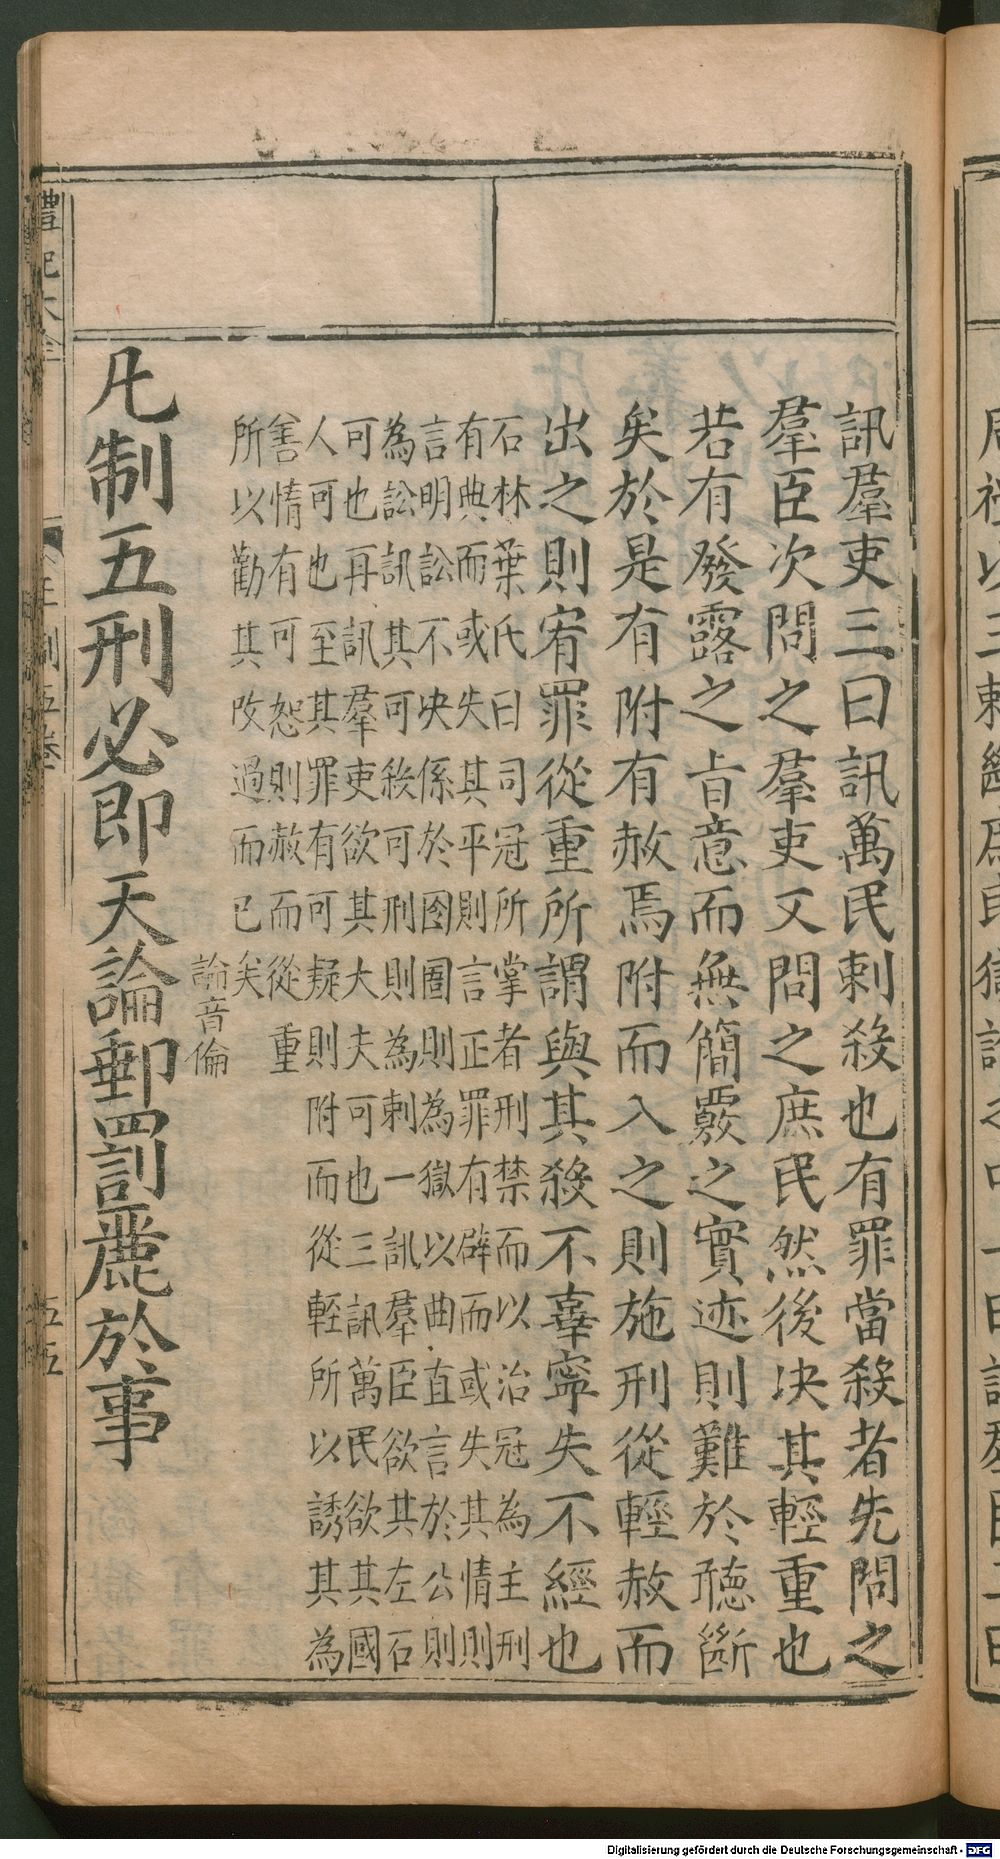 訊羣吏三曰訊萬民剌殺也有罪當殺者先問之
羣臣次問之羣吏又問之庶民然後决其輕重也
若有發露之旨意而無簡覈之實迹則難於聽斷
矣於是有附有赦焉附而入之則施刑從輕赦而
出之則宥罪從重所謂與其殺不辜寧失不經也
石林葉氏曰司冠所掌者刑禁而以治冠為主刑
有典而或失其平則言正罪有辟而或失其情則
言明訟不决係於囹圄則為獄以曲直言於公則
為訟訊其可殺可刑則為剌一訊羣臣欲其左石
可也再訊羣吏欲其大夫可也三訊萬民欲其國
人可也至其罪有可疑則附而從輕所以誘其為
善情有可恕則赦而從重
所以勸其改過而已矣
論音倫
凡制五刑必即天論郵罰麗於事
禮記大全
王制五卷
五五
Digitalisierung gefördert durch die Deutsche Forschungsgemeinschaft - DFG